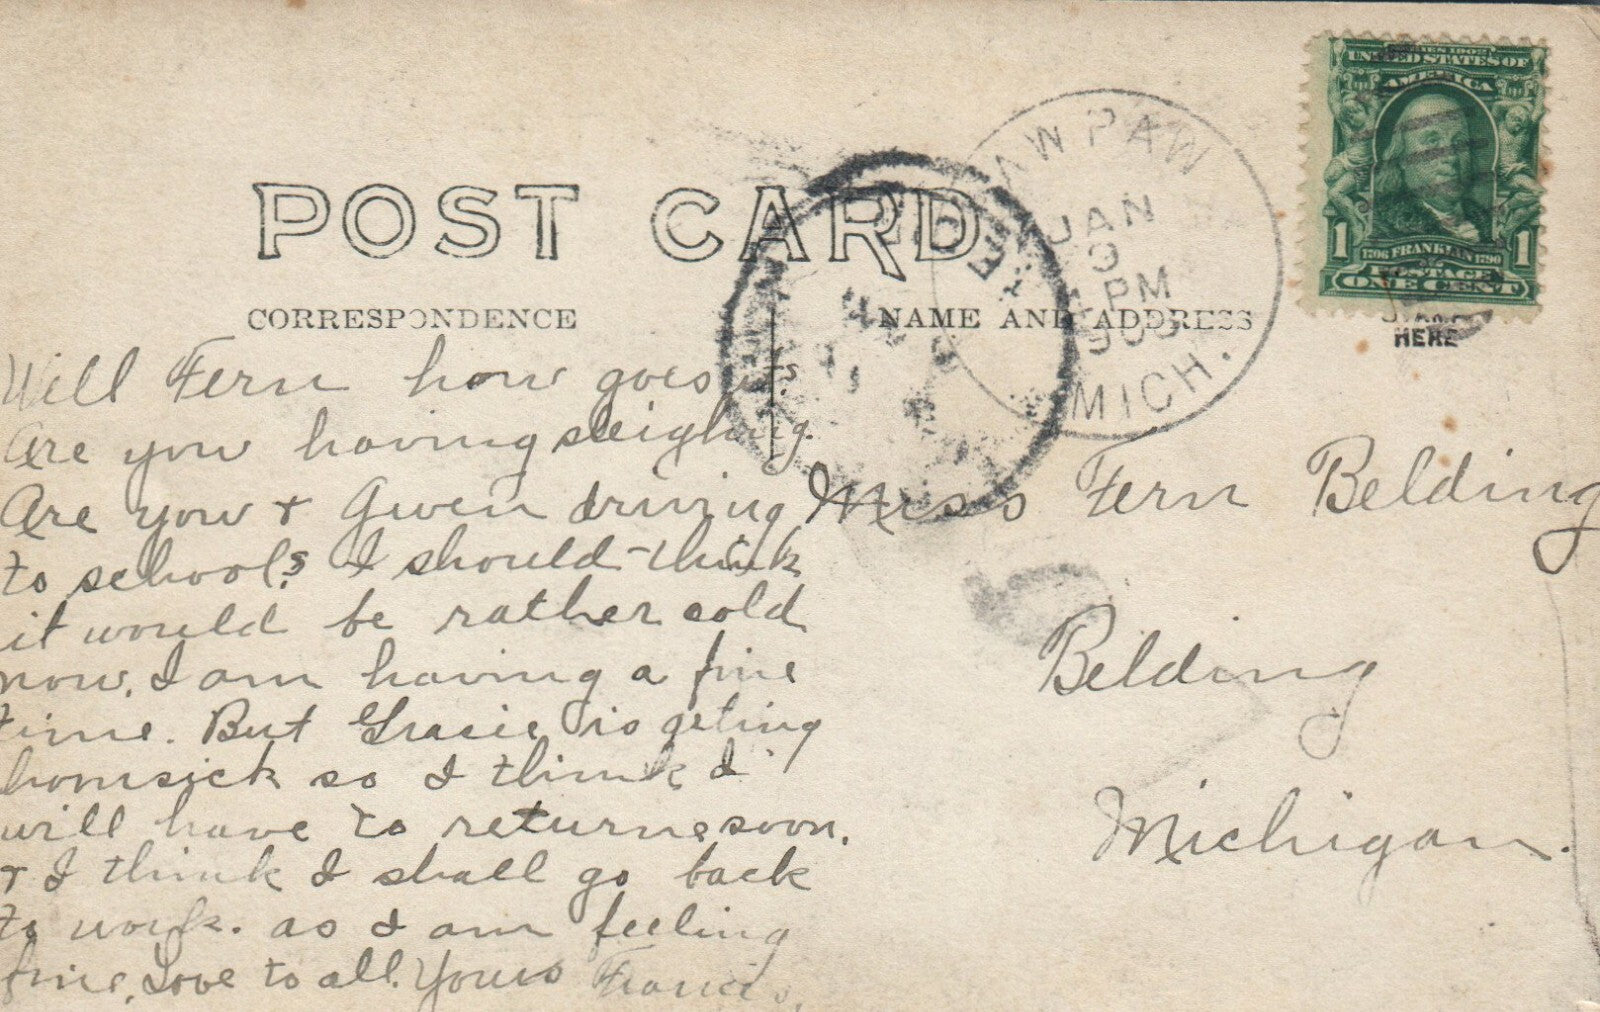 SERIES 1902
UNITED STATES OF
AMERICA
1 1
1706 FRANKLIN 1790
POSTAGE
ONE CENT
HERE
PAW PAW
JAN
9
PM
MICH.
POST CARD
CORRESPONDENCE
NAME AND ADDRESS
Will Fern how goes it?
Are you having sleighing.
Are you + Gwen driving
to school? I should think
it would be rather cold
now. I am having a fine
time. But Gracie is geting
homsick so I think I
will have to return soon.
+ I think I shall go back
to work. as I am feeling
fine. Love to all. Yours Francis.
Miss Fern Belding
Belding
Michigan.